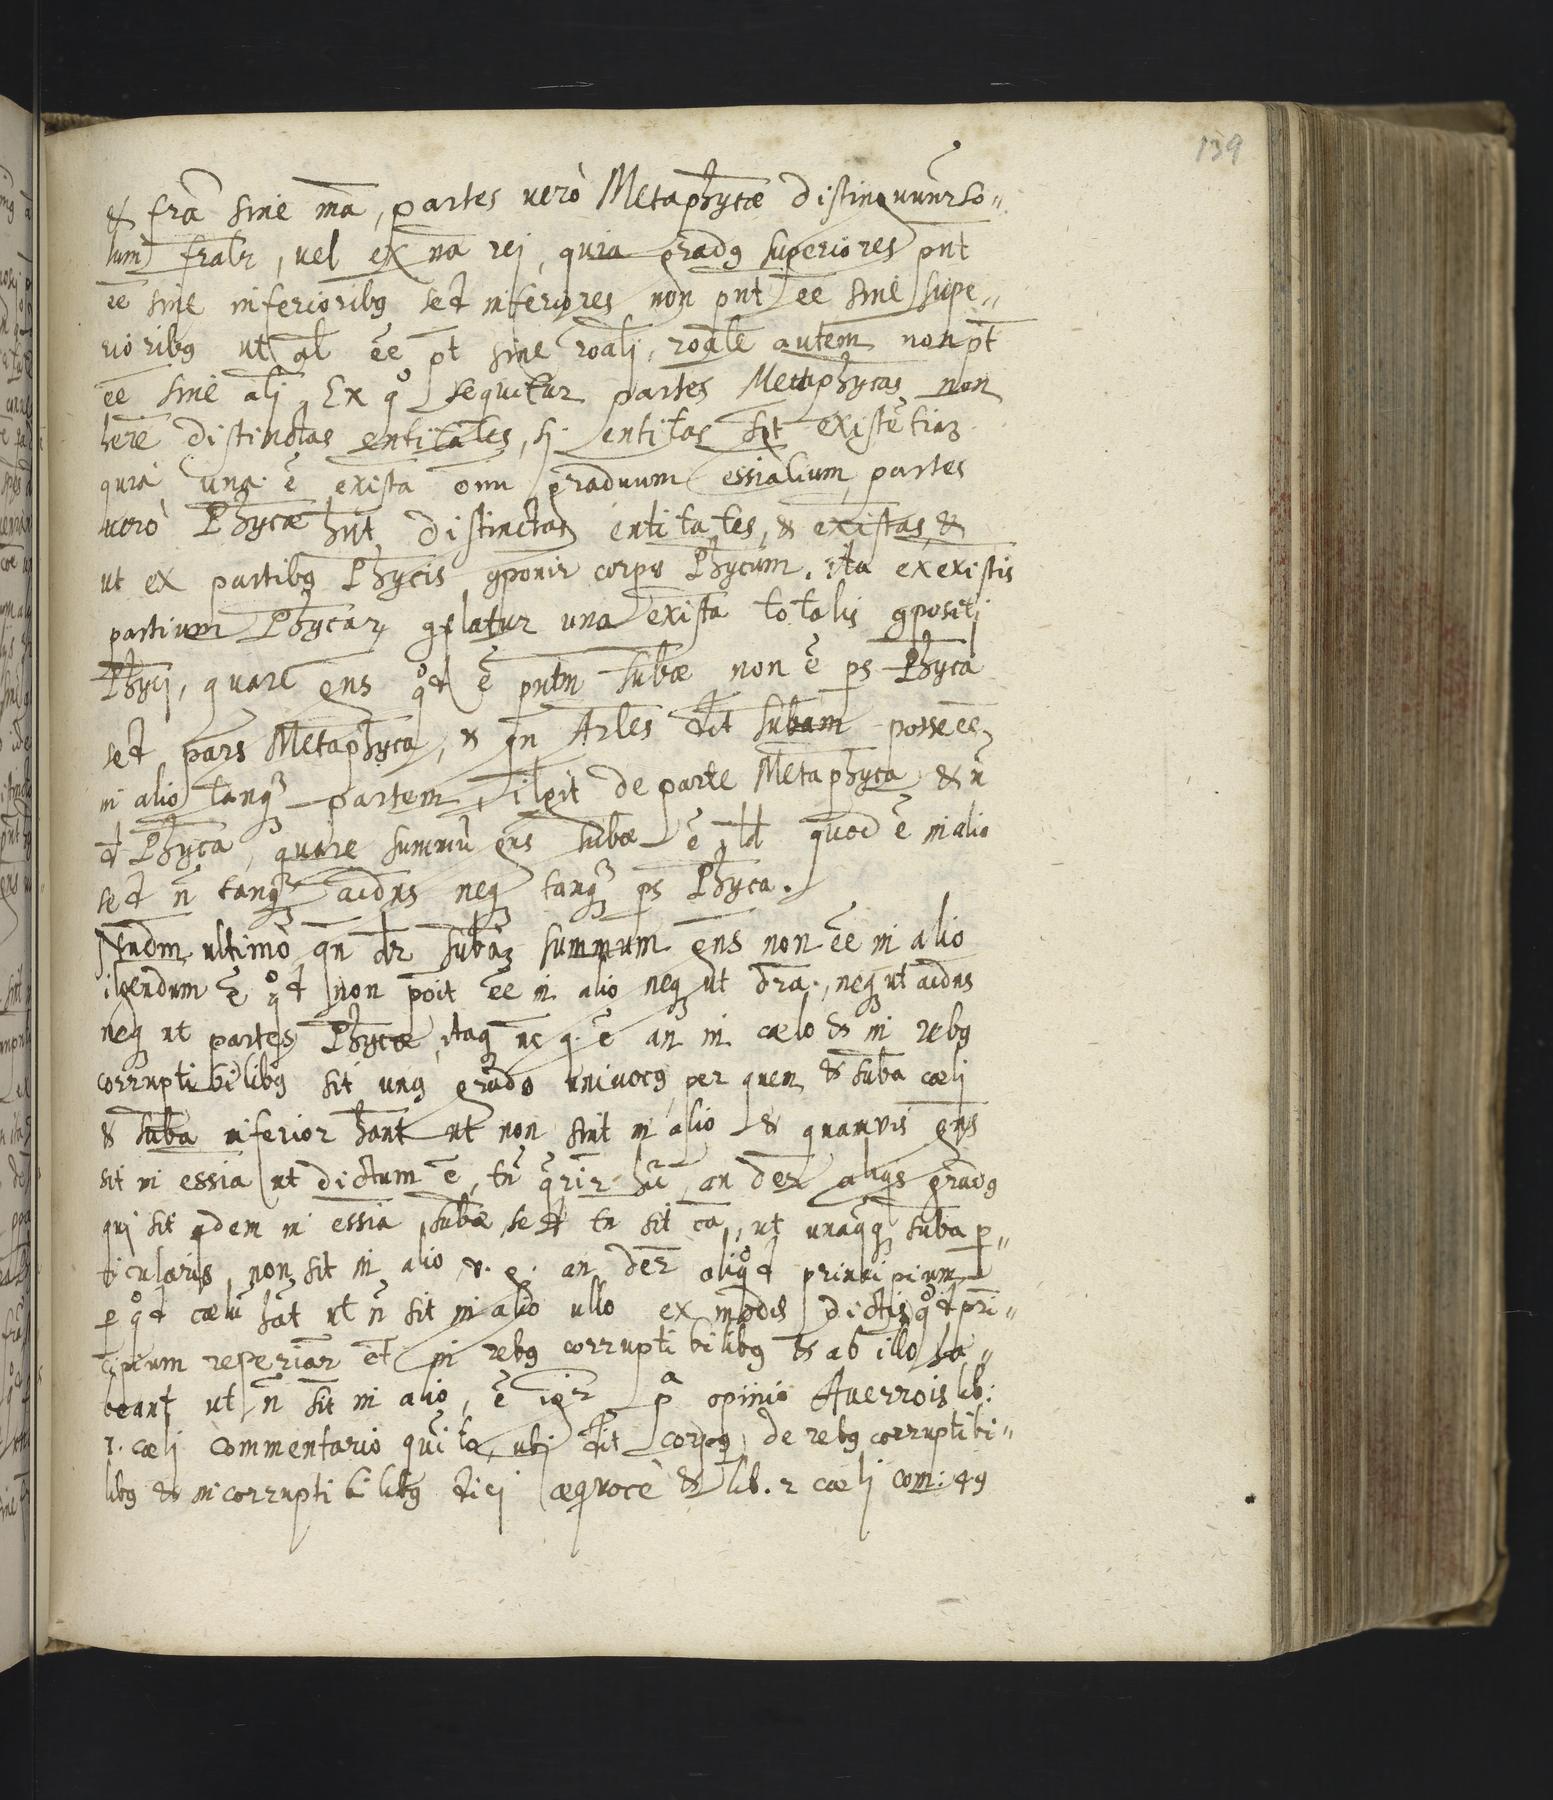 139
& fr̃a sine m̃a, partes uerò Metaphycæ distinguunr̃ so„
lum fralr̃, uel ex ña rej, quia grad9 superiores pñt
eẽ sine inferiorib9 sed inferiores non pñt eẽ sine supe„
riorib9 ut al̃ eẽ põt sine roãlj, roãle autem non põt
eẽ sine alj̃. Ex qº sequitur partes Metaphycas non
herẽ distinctas entitates, si entitas sit existẽtia
quia una ẽ existã oñiu graduum essialium, partes
uerò Phycæ hñt distinctas entitates, & existas, &
ut ex partib9 Phycis 9ponir̃ corpus Phycum, ita ex existis
partium Phycarꝝ 9flatur una existã totalis 9positj
Phycj, quare ens qºd ẽ pñtm subæ non ẽ ps̃ Phyca
sed pars Metaphyca, & qñ Arles dit̃ subam posse eẽ
in alio tanqꝫ partem, ilgit de parte Metaphyca & ñ
d̃ Phyca, quare summũ ens subæ ẽ ild quod ẽ in alio
sed ñ tanqꝫ acidns neqꝫ tanqꝫ ps̃ Phyca.
Nndm ultimò qñ dr̃ subã summum ens non eẽ in alio
ilgendum ẽ qºd non poit̃ eẽ in alio neqꝫ ut dr̃a, neqꝫ ut acidns
neqꝫ ut partes Phycæ, itaqꝫ nc̃ q. ẽ an in cælo & in reb9
corruptibilib9 sit un9 grad9 uniuoc9 per quem & suba cælj
& suba inferior hant̃ ut non sint in alio & quamvis ens
sit in essia ut dictum ẽ, tñ qrir̃ hic̃, an der̃ aliqs grad9
quj sit qdem in essia subæ, sed tñ sit cã, ut unaqꝫqꝫ suba p„
ticularis non sit in alio v.g. an der̃ aliqºd principium
p qºd cælũ hãt ut ñ sit in alio ullo ex modis dictis qºd pri„
cipium reperiãr et̃ in reb9 corruptibilib9 & ab illo ha„
beant ut ñ sit in alio, ẽ igr̃ pª opinio Auerrois lib:
1. cælj commentario quĩto, ubj dit̃ corp9 de reb9 corruptibi„
lib9 & incorruptibilib9 dicj æquocè & lib. 2 cælj com: 49